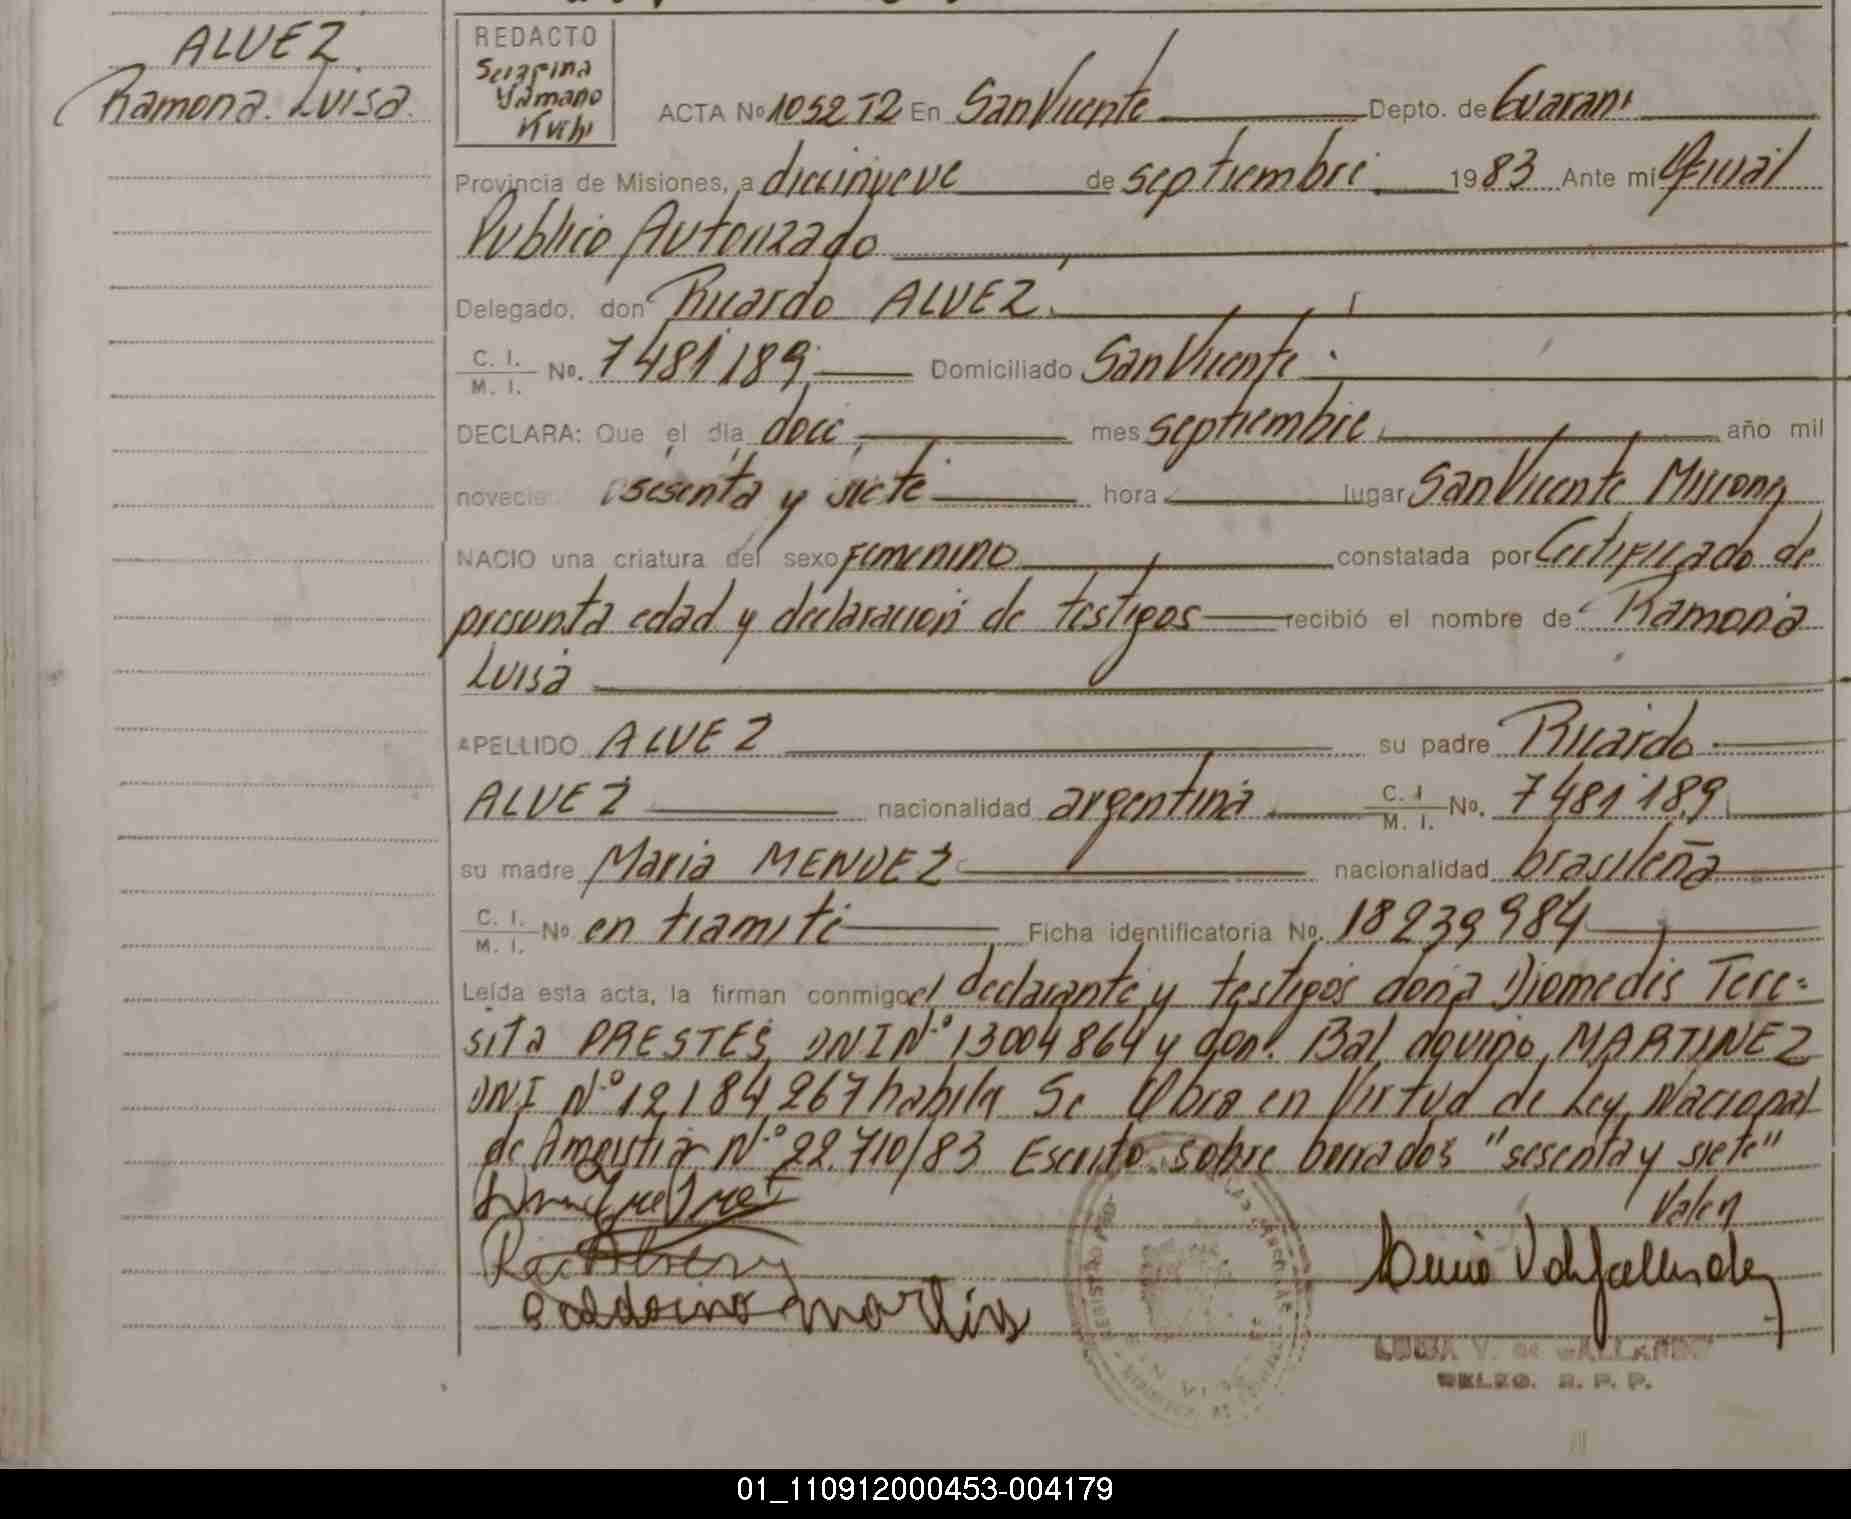 ALVEZ
Ramona Luisa.
REDACTO
Serafina
Yamano
ACTA Nº 1052 T2 En San Vicente Depto. de Guarani
Provincia de Misiones, a diecinueve de septiembre 1983 Ante mi Oficial
Publico Autorizado
Delegado, don Ricardo ALVEZ.
C. I.
M. I. Nº. 7481189 Domiciliado San Vicente
DECLARA: Que el dia doce mes septiembre año mil
novecie sesenta y siete hora lugar San Vicente Misiones
NACIO una criatura del sexo Femenino constatada por Certificado de
presunta edad y declaracion de testigos recibió el nombre de Ramona
Luisa
APELLIDO ALVEZ su padre Ricardo
ALVEZ nacionalidad argentina C. I. M. I. Nº. 7481189
su madre Maria MENDEZ nacionalidad brasileña
C. I.
M. I. Nº en tramite Ficha identificatoria No. 18239984
Leída esta acta, la firman conmigo el declarante y testigos doña Diomedis Tere=
sita PRESTES, DNI Nº 13004864 y don Baldouino MARTINEZ
DNI Nº 12.184.267 habiles Se Obra en Virtud de Ley Nacional
de Amnistia Nº 22.710/83 Escrito sobre borrados "sesenta y siete"
Valen
LUCIA V. de GALLARDO
DELEG. R. P. P.
01_110912000453-004179